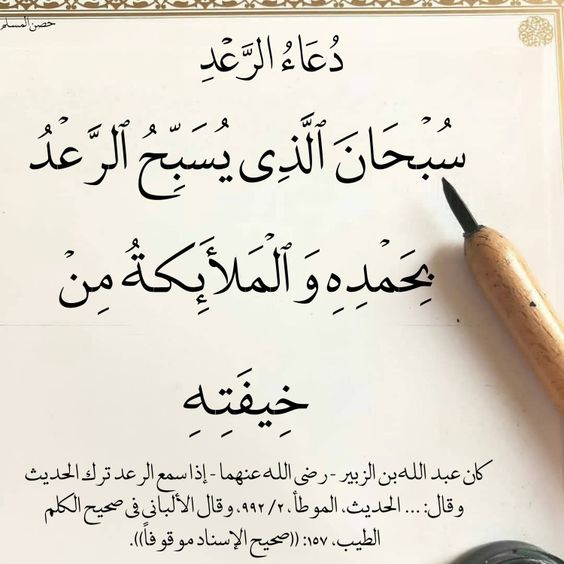 حصن المسلم
دُعَاءُ الرَّعْدِ
سُبْحَانَ ٱلَّذِى يُسَبِّحُ ٱلرَّعْدُ
بِحَمْدِهِ وَ ٱلْمَلأَئِكةُ مِنْ
خِيفَتِهِ
كان عبد الله بن الزبير - رضى الله عنهما - إذا سمع الرعد ترك الحديث
وقال: ... الحديث، الموطأ، ٢/ ٩٩٢، وقال الألبانى فى صحيح الكلم
الطيب، ١٥٧: ((صحيح الإسناد موقوفاً)).